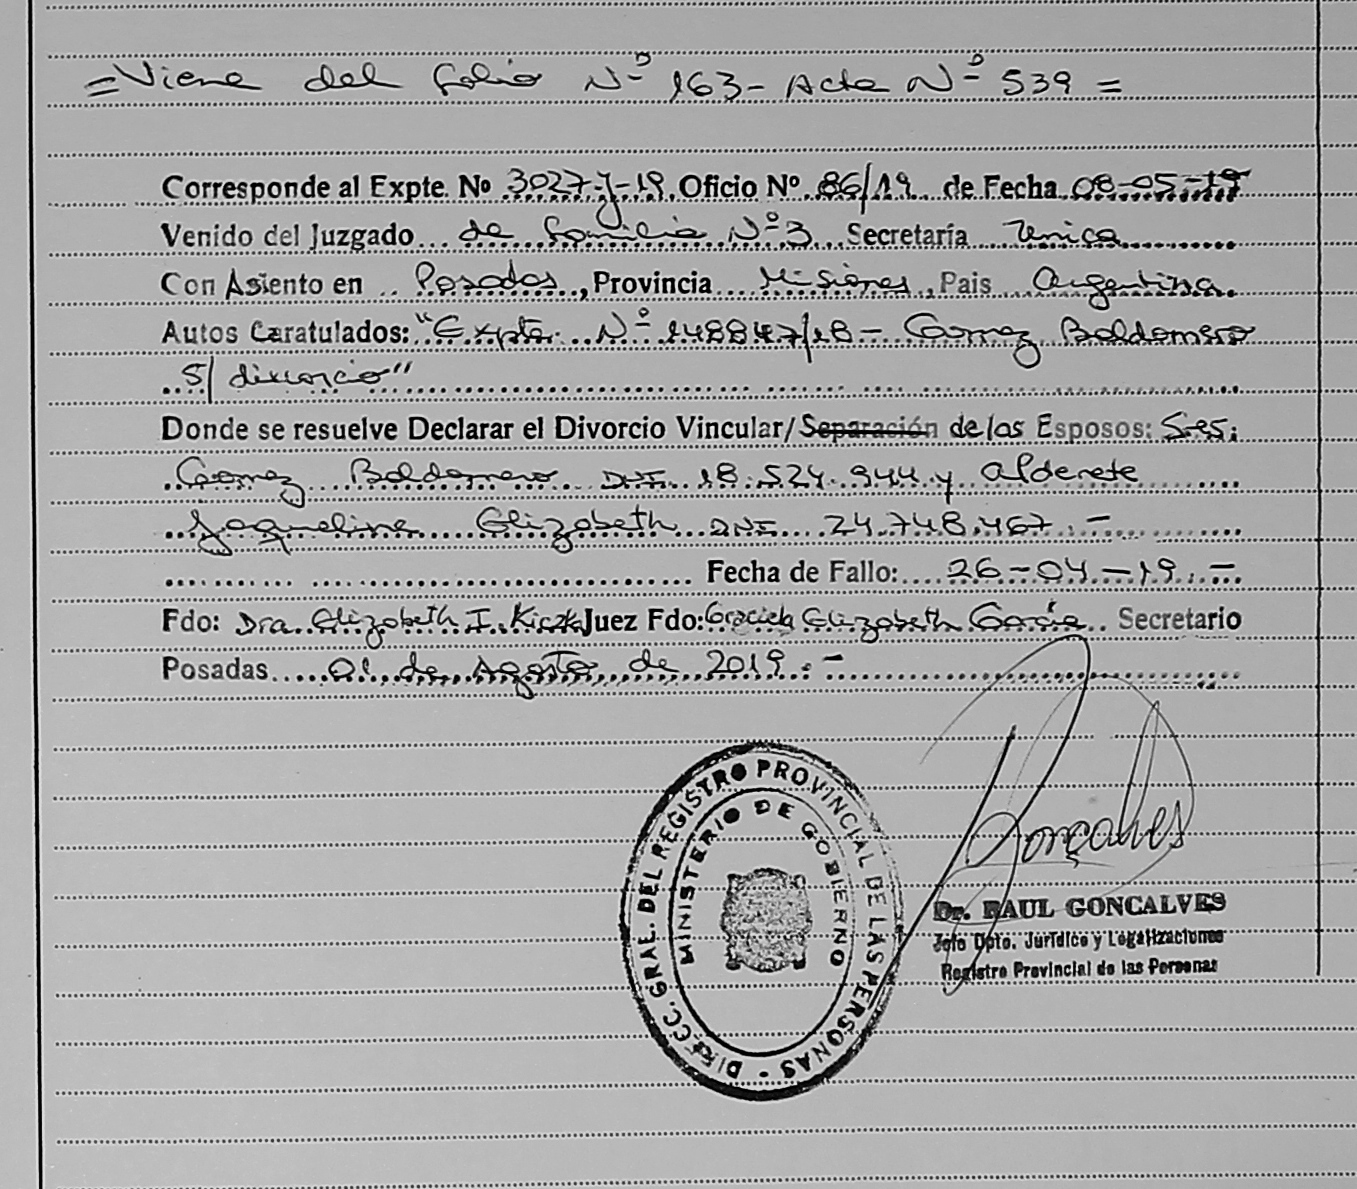 = Viene del folio Nº 163 - Acta Nº 539 =
Corresponde al Expte. Nº 3027-J-19 Oficio Nº 86/19 de Fecha 08-05-19
Venido del Juzgado de Familia Nº 3 Secretaría Unica
Con Asiento en Posadas, Provincia Misiones, Pais Argentina
Autos Caratulados: "Expte. Nº 148847/18 - Gomez Baldomero
S/ divorcio"
Donde se resuelve Declarar el Divorcio Vincular/Separación de los Esposos: Sres;
Gomez Baldomero DNI 18.524.944 y Alderete
Jaqueline Elizabeth DNI 24.748.467.-
Fecha de Fallo: 26-04-19.-
Fdo: Dra. Elizabeth I. Kiczka Juez Fdo: Graciela Elizabeth Garcia Secretario
Posadas 01 de Agosto de 2019.-
DIRECC. GRAL. DEL REGISTRO PROVINCIAL DE LAS PERSONAS -
MINISTERIO DE GOBIERNO
Gonçalves
Dr. RAUL GONCALVES
Jefe Dpto. Jurídico y Legalizaciones
Registro Provincial de las Personas